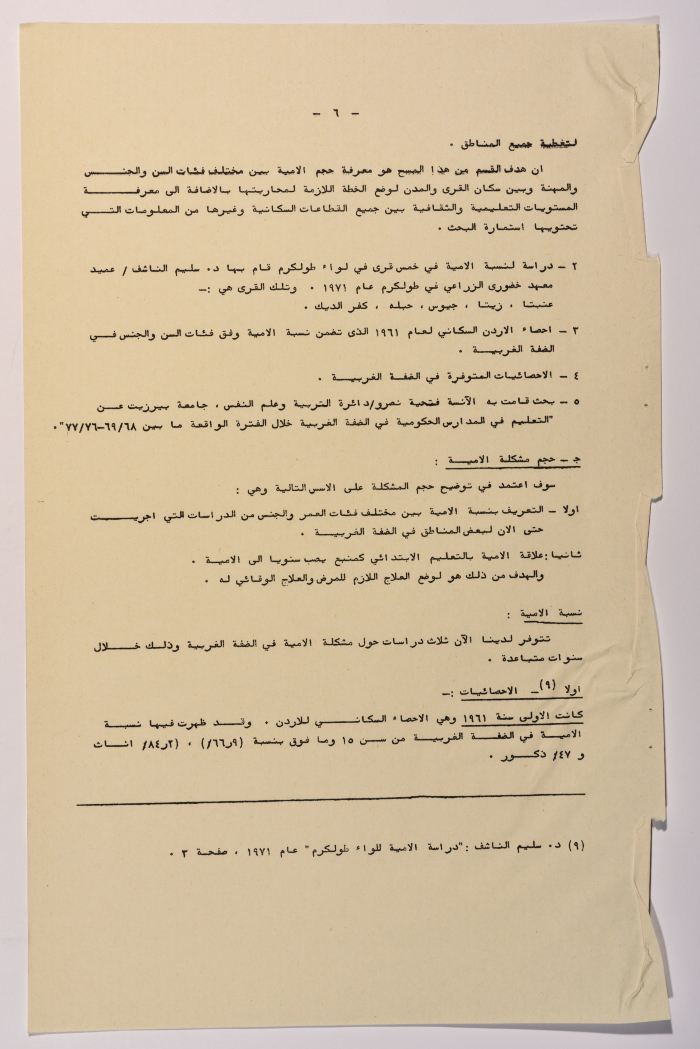 - ٦ -
لتغطية جميع المناطق .
ان هدف القسم من هذا المسح هو معرفة حجم الامية بين مختلف فئات السن والجنس
والمهنة وبين سكان القرى والمدن لوضع الخطة اللازمة لمحاربتها بالاضافة الى معرفة
المستويات التعليمية والثقافية بين جميع القطاعات السكانية وغيرها من المعلومات التي
تحتويها استمارة البحث .
٢ - دراسة لنسبة الامية في خمس قرى في لواء طولكرم قام بها د. سليم الناشف / عميد
معهد خضورى الزراعي في طولكرم عام ١٩٧١ . وتلك القرى هي :-
عنبتا ، زيتا ، جيوس ، حبله ، كفر الديك .
٣ - احصاء الاردن السكاني لعام ١٩٦١ الذى تضمن نسبة الامية وفق فئات السن والجنس في
الضفة الغربية .
٤ - الاحصائيات المتوفرة في الضفة الغربية .
٥ - بحث قامت به الآنسة فتحية نصرو/دائرة التربية وعلم النفس ، جامعة بيرزيت عن
"التعليم في المدارس الحكومية في الضفة الغربية خلال الفترة الواقعة ما بين ٦٩/٦٨-٧٧/٧٦".
ج - حجم مشكلة الامية :
سوف اعتمد في توضيح حجم المشكلة على الاسس التالية وهي :
اولا - التعريف بنسبة الامية بين مختلف فئات العمر والجنس من الدراسات التي اجريت
حتى الان لبعض المناطق في الضفة الغربية .
ثانيا : علاقة الامية بالتعليم الابتدائي كمنبع يصب سنويا الى الامية .
والهدف من ذلك هو لوضع العلاج اللازم للمرض والعلاج الوقائي له .
نسبة الامية :
تتوفر لدينا الآن ثلاث دراسات حول مشكلة الامية في الضفة الغربية وذلك خلال
سنوات متباعدة .
اولا (٩)- الاحصائيات :-
كانت الاولى سنة ١٩٦١ وهي الاحصاء السكاني للاردن . وقد ظهرت فيها نسبة
الامية في الضفة الغربية من سن ١٥ وما فوق بنسبة (٩ر٦٦٪) ، (٢ر٨٤٪ اناث
و ٤٧٪ ذكور .
(٩) د. سليم الناشف : "دراسة الامية للواء طولكرم" عام ١٩٧١ ، صفحة ٣ .